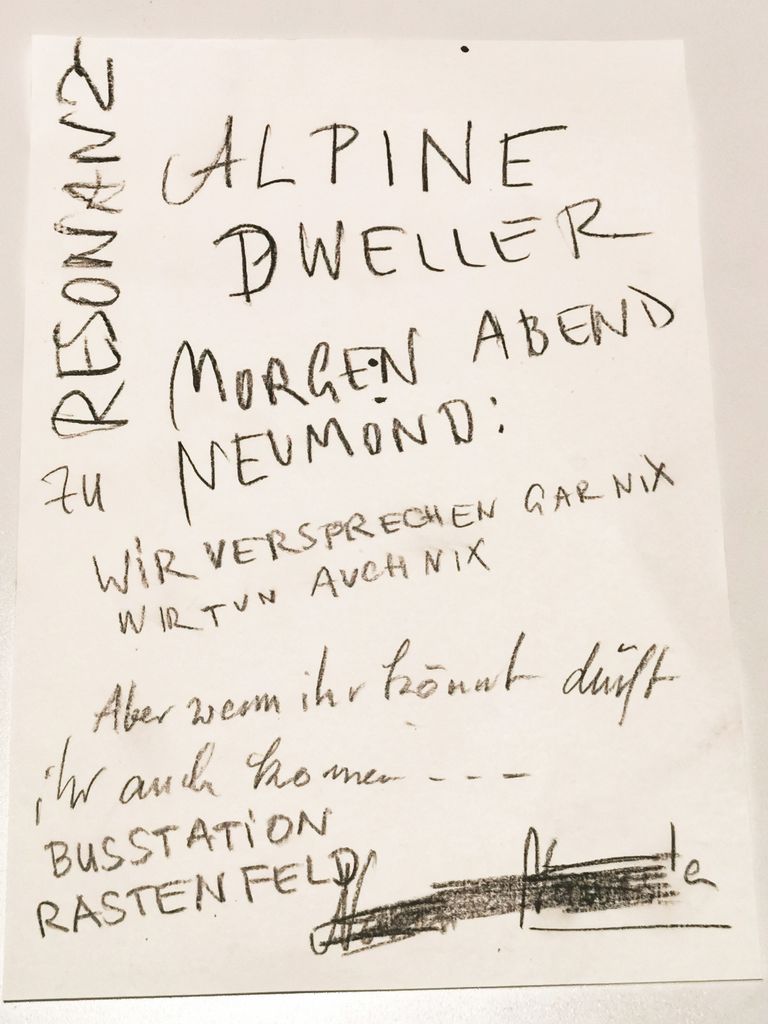 RESONANZ
ZU
ALPINE
DWELLER
MORGEN ABEND
NEUMOND:
WIR VERSPRECHEN GAR NIX
WIR TUN AUCH NIX
Aber wenn ihr könnt dürft
ihr auch kommen - - -
BUSSTATION
RASTENFELD